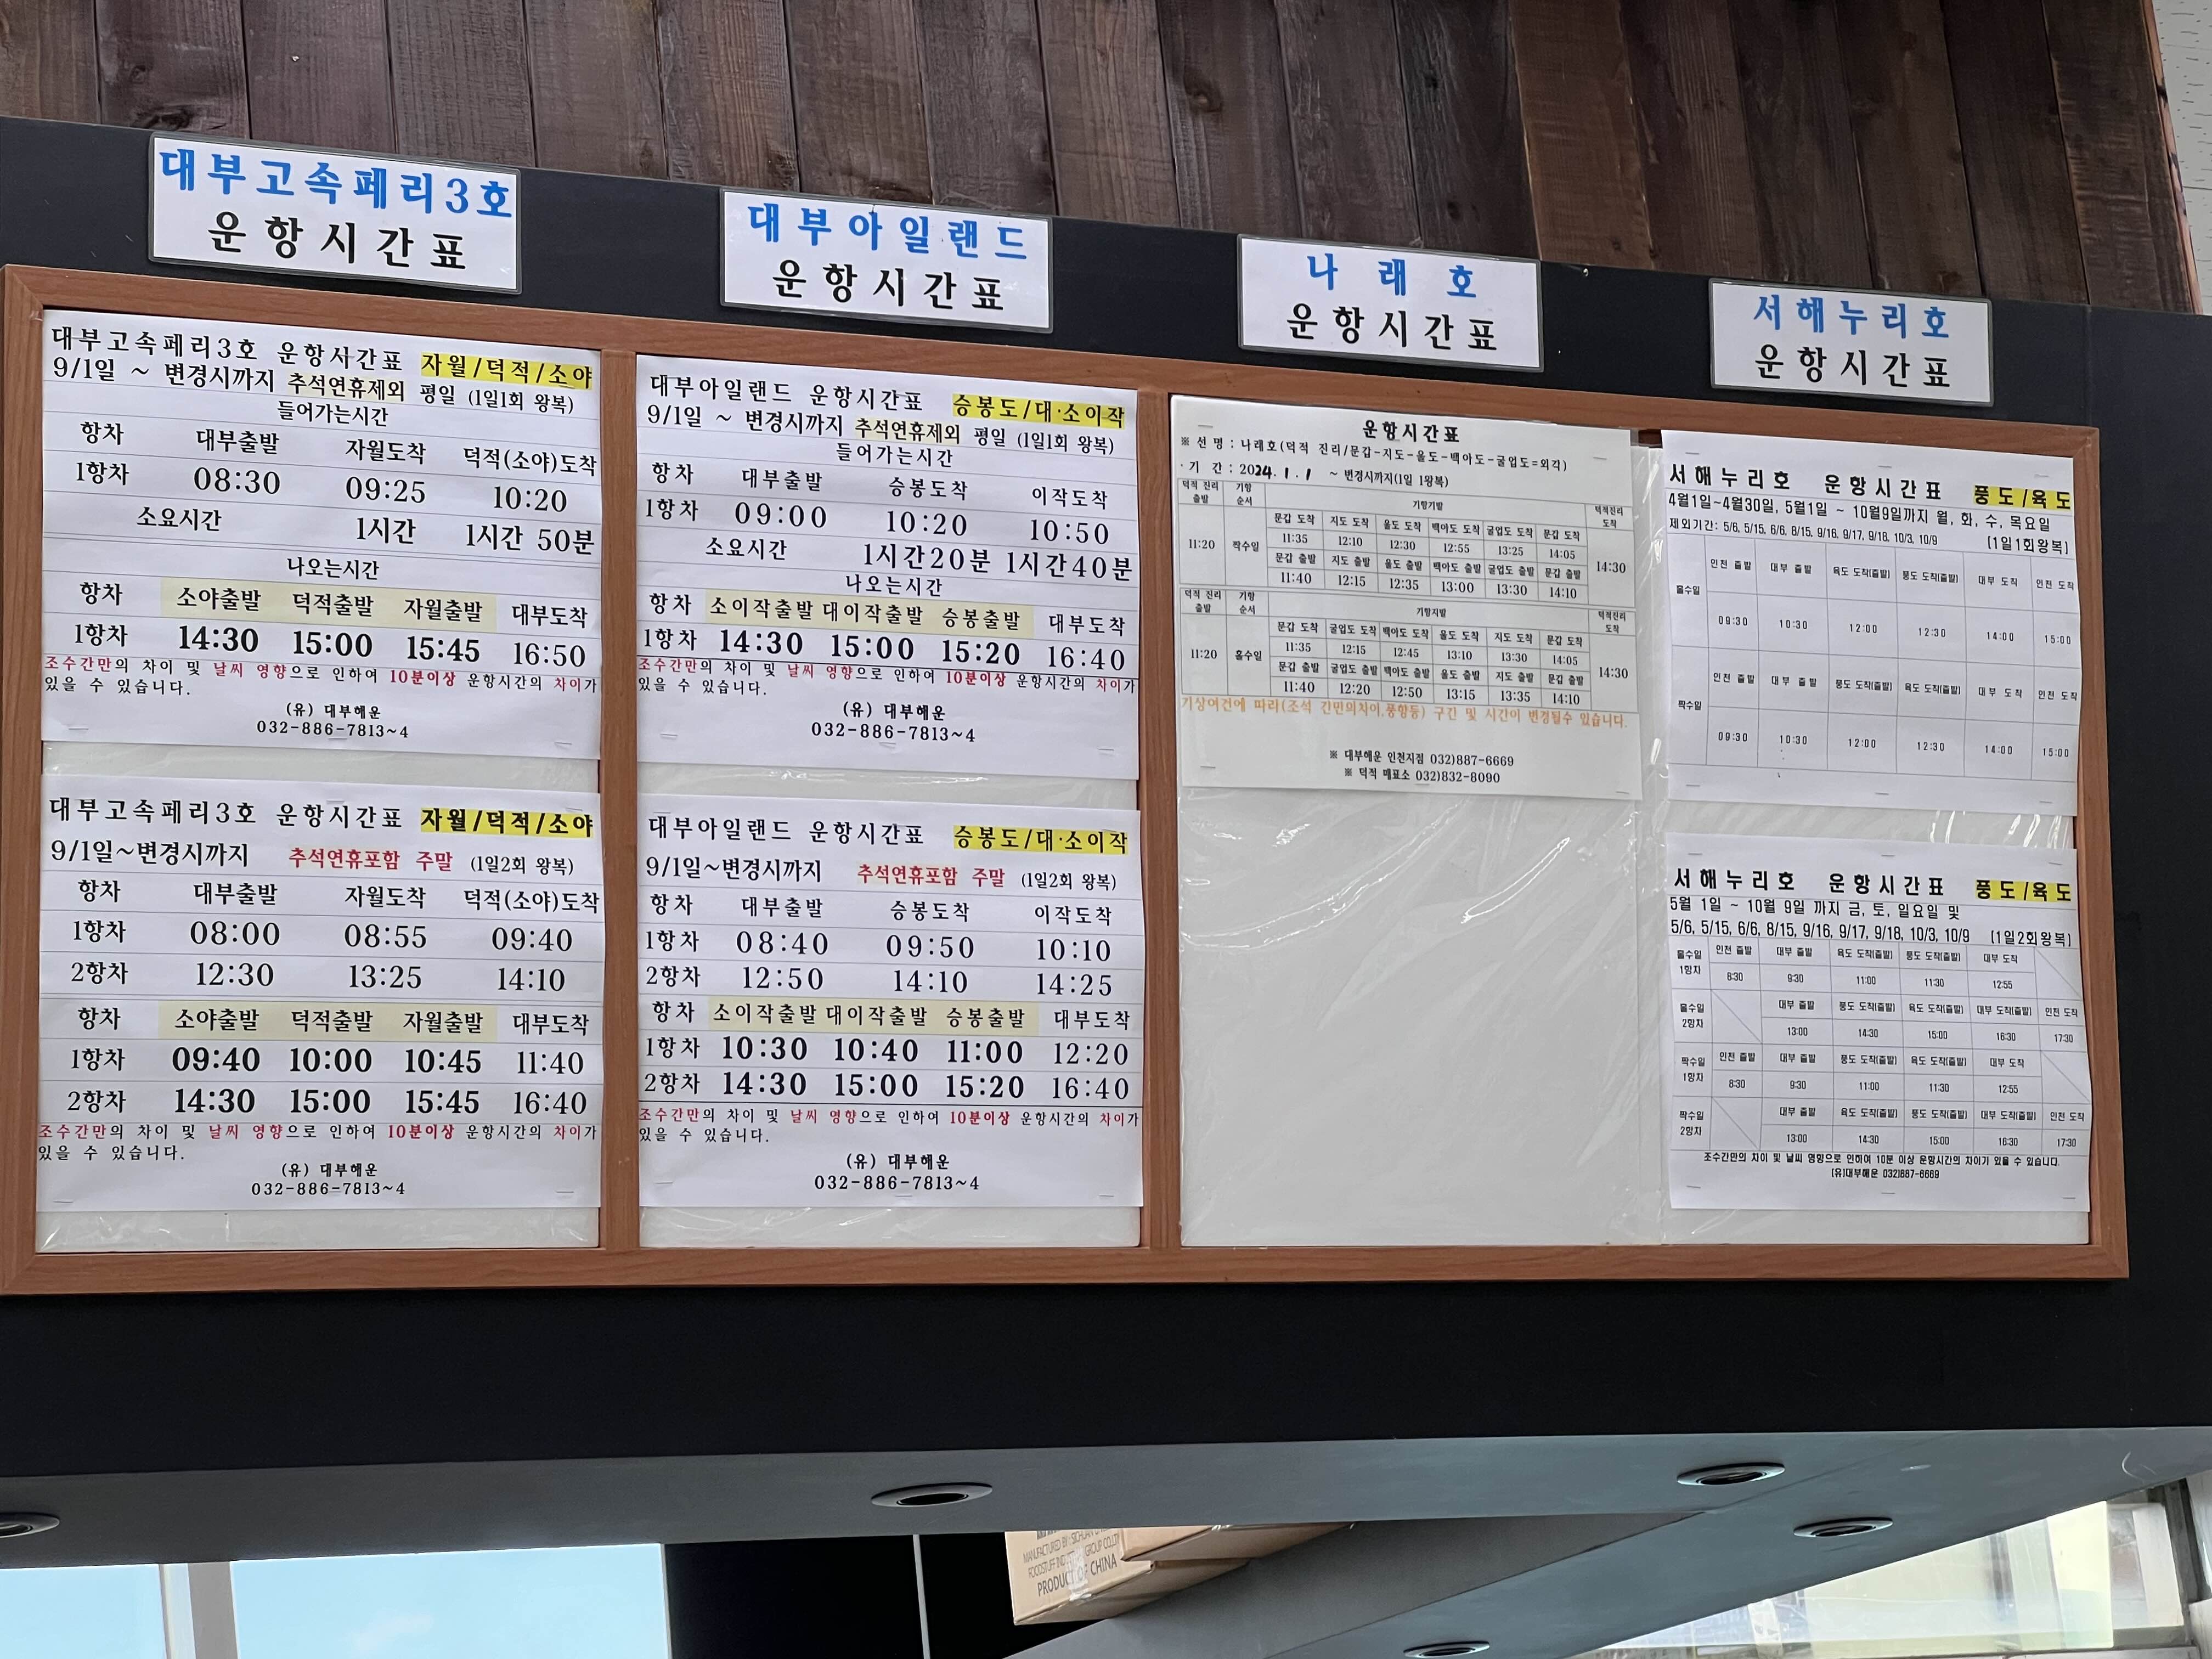 대부고속페리3호
운항시간표
대부아일랜드
운항시간표
나래호
운항시간표
서해누리호
운항시간표
대부고속페리3호 운항시간표 자월/덕적/소야
9/1일 ~ 변경시까지 추석연휴제외 평일 (1일1회 왕복)
들어가는시간
항차 대부출발 자월도착 덕적(소야)도착
1항차 08:30 09:25 10:20
소요시간 1시간 1시간 50분
나오는시간
항차 소야출발 덕적출발 자월출발 대부도착
1항차 14:30 15:00 15:45 16:50
조수간만의 차이 및 날씨 영향으로 인하여 10분이상 운항시간의 차이가
있을 수 있습니다.
(유) 대부해운
032-886-7813~4
대부고속페리3호 운항시간표 자월/덕적/소야
9/1일~변경시까지 추석연휴포함 주말 (1일2회 왕복)
항차 대부출발 자월도착 덕적(소야)도착
1항차 08:00 08:55 09:40
2항차 12:30 13:25 14:10
항차 소야출발 덕적출발 자월출발 대부도착
1항차 09:40 10:00 10:45 11:40
2항차 14:30 15:00 15:45 16:40
조수간만의 차이 및 날씨 영향으로 인하여 10분이상 운항시간의 차이가
있을 수 있습니다.
(유) 대부해운
032-886-7813~4
대부아일랜드 운항시간표 승봉도/대·소이작
9/1일 ~ 변경시까지 추석연휴제외 평일 (1일1회 왕복)
들어가는시간
항차 대부출발 승봉도착 이작도착
1항차 09:00 10:20 10:50
소요시간 1시간20분 1시간40분
나오는시간
항차 소이작출발 대이작출발 승봉출발 대부도착
1항차 14:30 15:00 15:20 16:40
조수간만의 차이 및 날씨 영향으로 인하여 10분이상 운항시간의 차이가
있을 수 있습니다.
(유) 대부해운
032-886-7813~4
대부아일랜드 운항시간표 승봉도/대·소이작
9/1일~변경시까지 추석연휴포함 주말 (1일2회 왕복)
항차 대부출발 승봉도착 이작도착
1항차 08:40 09:50 10:10
2항차 12:50 14:10 14:25
항차 소이작출발 대이작출발 승봉출발 대부도착
1항차 10:30 10:40 11:00 12:20
2항차 14:30 15:00 15:20 16:40
조수간만의 차이 및 날씨 영향으로 인하여 10분이상 운항시간의 차이가
있을 수 있습니다.
(유) 대부해운
032-886-7813~4
운항시간표
※ 선 명 : 나래호(덕적 진리/문갑-지도-울도-백아도-굴업도=외각)
· 기 간 : 2024. 1. 1 ~ 변경시까지(1일 1왕복)
덕적 진리 출발 기항 순서 기항기발 덕적진리 도착
문갑 도착 지도 도착 울도 도착 백아도 도착 굴업도 도착 문갑 도착
11:35 12:10 12:30 12:55 13:25 14:05
11:20 짝수일 14:30
문갑 출발 지도 출발 울도 출발 백아도 출발 굴업도 출발 문갑 출발
11:40 12:15 12:35 13:00 13:30 14:10
덕적 진리 출발 기항 순서 기항지발 덕적진리 도착
문갑 도착 굴업도 도착 백아도 도착 울도 도착 지도 도착 문갑 도착
11:35 12:15 12:45 13:10 13:30 14:05
11:20 홀수일 14:30
문갑 출발 굴업도 출발 백아도 출발 울도 출발 지도 출발 문갑 출발
11:40 12:20 12:50 13:15 13:35 14:10
기상여건에 따라(조석 간만의차이,풍향등) 구간 및 시간이 변경될수 있습니다.
※ 대부해운 인천지점 032)887-6669
※ 덕적 매표소 032)832-8090
서해누리호 운항시간표 풍도/육도
4월1일~4월30일, 5월1일 ~ 10월9일까지 월, 화, 수, 목요일
제외기간: 5/6, 5/15, 6/6, 8/15, 9/16, 9/17, 9/18, 10/3, 10/9 (1일1회왕복)
인천 출발 대부 출발 육도 도착(출발) 풍도 도착(출발) 대부 도착 인천 도착
홀수일
09:30 10:30 12:00 12:30 14:00 15:00
인천 출발 대부 출발 풍도 도착(출발) 육도 도착(출발) 대부 도착 인천 도착
짝수일
09:30 10:30 12:00 12:30 14:00 15:00
서해누리호 운항시간표 풍도/육도
5월 1일 ~ 10월 9일 까지 금, 토, 일요일 및
5/6, 5/15, 6/6, 8/15, 9/16, 9/17, 9/18, 10/3, 10/9 (1일2회왕복)
홀수일 1항차 인천 출발 대부 출발 육도 도착(출발) 풍도 도착(출발) 대부 도착
8:30 9:30 11:00 11:30 12:55
홀수일 2항차 대부 출발 풍도 도착(출발) 육도 도착(출발) 대부 도착(출발) 인천 도착
13:00 14:30 15:00 16:30 17:30
짝수일 1항차 인천 출발 대부 출발 풍도 도착(출발) 육도 도착(출발) 대부 도착
8:30 9:30 11:00 11:30 12:55
짝수일 2항차 대부 출발 육도 도착(출발) 풍도 도착(출발) 대부 도착(출발) 인천 도착
13:00 14:30 15:00 16:30 17:30
조수간만의 차이 및 날씨 영향으로 인하여 10분 이상 운항시간의 차이가 있을 수 있습니다.
(유)대부해운 032)887-6669
PRODUCT OF CHINA